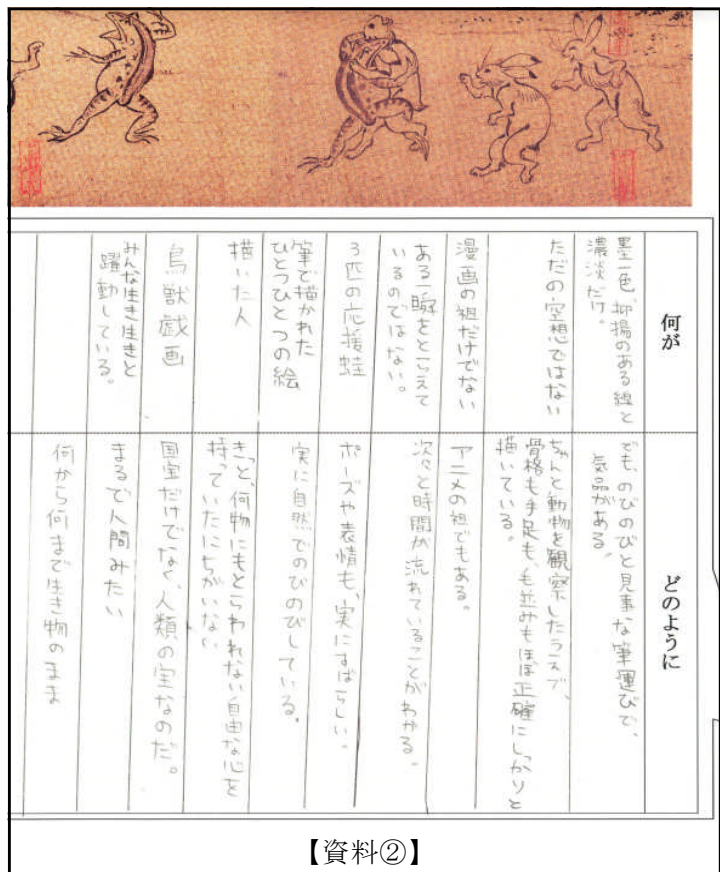 何が
どのように
墨一色、抑揚のある線と
濃淡だけ。
でも、のびのびと見事な筆運びで、
気品がある。
ただの空想ではない
ちゃんと動物を観察したうえで、
骨格も手足も、毛並みもほぼ正確にしっかりと
描いている。
漫画の祖だけでない
アニメの祖でもある。
ある一瞬をとらえて
いるのではない。
次々と時間が流れていることがわかる。
3匹の応援蛙
ポーズや表情も、実にすばらしい。
筆で描かれた
ひとつひとつの絵
実に自然でのびのびしている。
描いた人
きっと、何物にもとらわれない自由な心を
持っていたにちがいない
鳥獣戯画
国宝だけでなく、人類の宝なのだ。
みんな生き生きと
躍動している。
まるで人間みたい
何から何まで生き物のまま
【資料②】